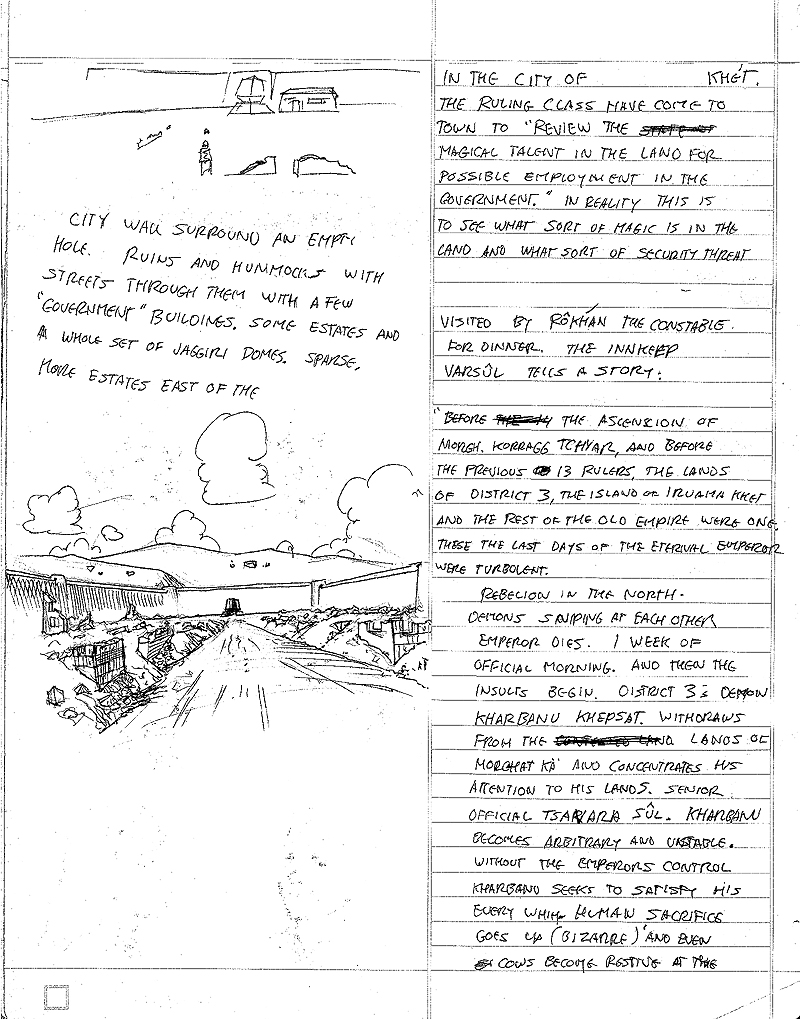 CITY WALL SURROUND AN EMPTY
HOLE. RUINS AND HUMMOCKS WITH
STREETS THROUGH THEM WITH A FEW
"GOVERNMENT" BUILDINGS. SOME ESTATES AND
A WHOLE SET OF JAGGIRI DOMES. SPARSE,
MORE ESTATES EAST OF THE
IN THE CITY OF KHÉT.
THE RULING CLASS HAVE COME TO
TOWN TO "REVIEW THE
MAGICAL TALENT IN THE LAND FOR
POSSIBLE EMPLOYMENT IN THE
GOVERNMENT." IN REALITY THIS IS
TO SEE WHAT SORT OF MAGIC IS IN THE
LAND AND WHAT SORT OF SECURITY THREAT
VISITED BY RÔKHÁN THE CONSTABLE.
FOR DINNER. THE INNKEEP
VARSÛL TELLS A STORY:
"BEFORE THE ASCENSION OF
MORGH. KORRAGG TCHYAR, AND BEFORE
THE PREVIOUS 13 RULERS, THE LANDS
OF DISTRICT 3, THE ISLAND OF IRUAMA KKET
AND THE REST OF THE OLD EMPIRE WERE ONE.
THESE THE LAST DAYS OF THE ETERNAL EMPEROR
WERE TURBOLENT.
REBELION IN THE NORTH.
DEMONS SNIPING AT EACH OTHER
EMPEROR DIES. 1 WEEK OF
OFFICIAL MORNING. AND THEN THE
INSULTS BEGIN. DISTRICT 3's DEMON
KHARBANU KHEPSAT. WITHDRAWS
FROM THE LANDS OF
MORGHAT KÁ AND CONCENTRATES HIS
ATTENTION TO HIS LANDS. SENIOR
OFFICIAL TSAKARA SÛL. KHARBANU
BECOMES ARBITRARY AND UNSTABLE.
WITHOUT THE EMPERORS CONTROL
KHARBANU SEEKS TO SATISFY HIS
EVERY WHIM HUMAN SACRIFICE
GOES UP (BIZARRE) AND EVEN
COWS BECOME RESTIVE AT THE